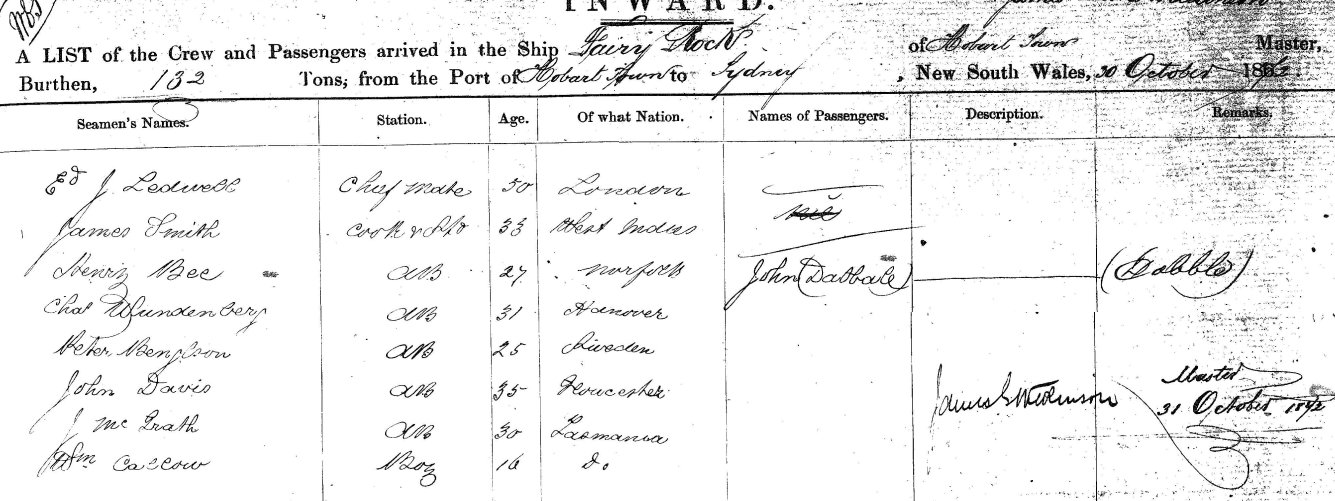 INWARD.
A LIST of the Crew and Passengers arrived in the Ship Fairy Rock of Hobart Town Master,
Burthen, 132 Tons, from the Port of Hobart Town to Sydney, New South Wales, 30 October 1872
Seamen's Names. Station. Age. Of what Nation. Names of Passengers. Description. Remarks.
Ed J. Ledwell Chief Mate 50 London
nil
James Smith Cook & Std 33 West Indies
Henry Bee AB 27 Norfolk John (Dabbale) (Dabble)
Chas Wundenberg AB 31 Hanover
Peter Bengtson AB 25 Sweden
John Davis AB 35 Gloucester
James G Wilkinson Master
31 October 1872
J McGrath AB 30 Tasmania
Wm Callow Boy 16 Do